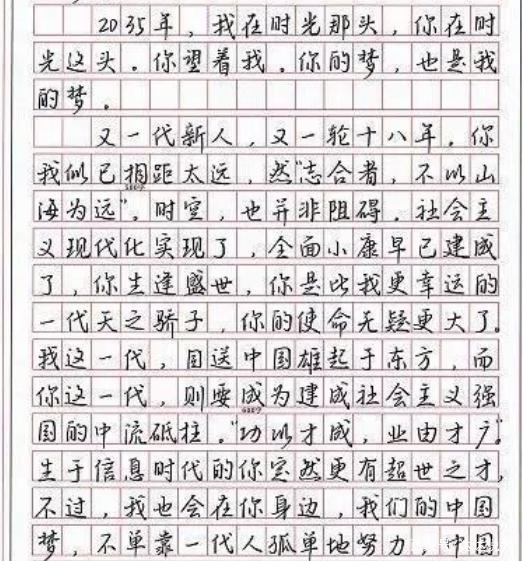 2035年，我在时光那头，你在时
光这头。你望着我。你的梦，也是我
的梦。
又一代新人，又一轮十八年。你
我似已相距太远，然“志合者，不以山
海为远”。时空，也并非阻碍。社会主
义现代化实现了，全面小康早已建成
了，你生逢盛世，你是比我更幸运的
一代天之骄子，你的使命无疑更大了。
我这一代，目送中国雄起于东方，而
你这一代，则要成为建成社会主义强
国的中流砥柱。“功以才成，业由才广”。
生于信息时代的你突然更有超世之才，
不过，我也会在你身边，我们的中国
梦，不单靠一代人孤单地努力，中国